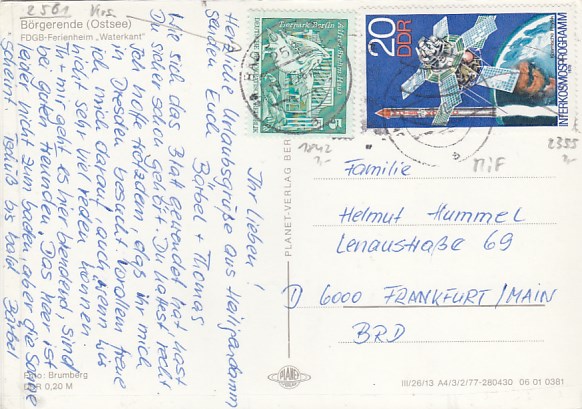 2581 Kos.
Börgerende (Ostsee)
FDGB-Ferienheim „Waterkant"
Ihr lieben!
Herzliche Urlaubsgrüße aus Heiligendamm
senden Euch
Bärbel + Thomas
Wie sich das Blatt gewendet hat, hast
Du sicher schon gehört. Du hattest recht.
Ich hoffe trotzdem, daß Ihr mich
in Dresden besucht. Vor allem freue
ich mich darauf, auch wenn wir
nicht sehr viel reden können.
Mir geht es hier blendend, sind
bei guten Freunden. Das Meer ist
leider nicht zum baden, aber die Sonne
scheint. Tschüß bis bald Bärbel
Foto: Brumberg
DDR 0,20 M
PLANET-VERLAG BER
PLANET
Tierpark Berlin
5
DDR
20
DDR
INTERKOSMOSPROGRAMM
1842
2355
MiF
Familie
Helmut Hummel
Lenaustraße 69
D 6000 FRANKFURT/MAIN
BRD
III/26/13 A4/3/2/77-280430 06 01 0381